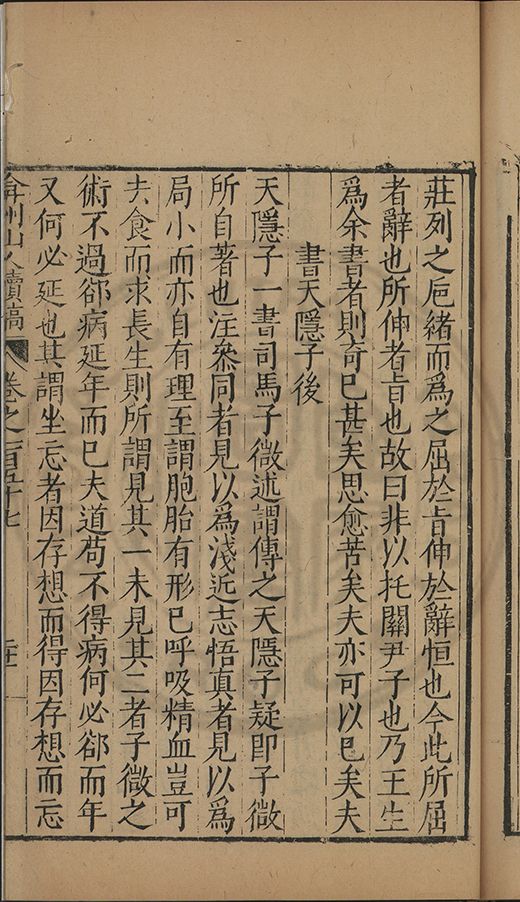 莊列之巵緒而爲之屈於㫖伸於辭恒也今此所屈
者辭也所伸者㫖也故曰非以托關尹子也乃王生
爲余書者則竒已甚矣思愈苦矣夫亦可以已矣夫
書天隱子後
天隱子一書司馬子微述謂傳之天隱子疑即子微
所自著也注叅同者見以爲淺近志悟真者見以爲
局小而亦自有理至謂胞胎有形已呼吸精血豈可
去食而求長生則所謂見其一未見其二者子微之
術不過郤病延年而已夫道苟不得病何必郤而年
又何必延也其謂坐忘者因存想而得因存想而忘
弇州山人續稿 卷之一百五十七 二十一